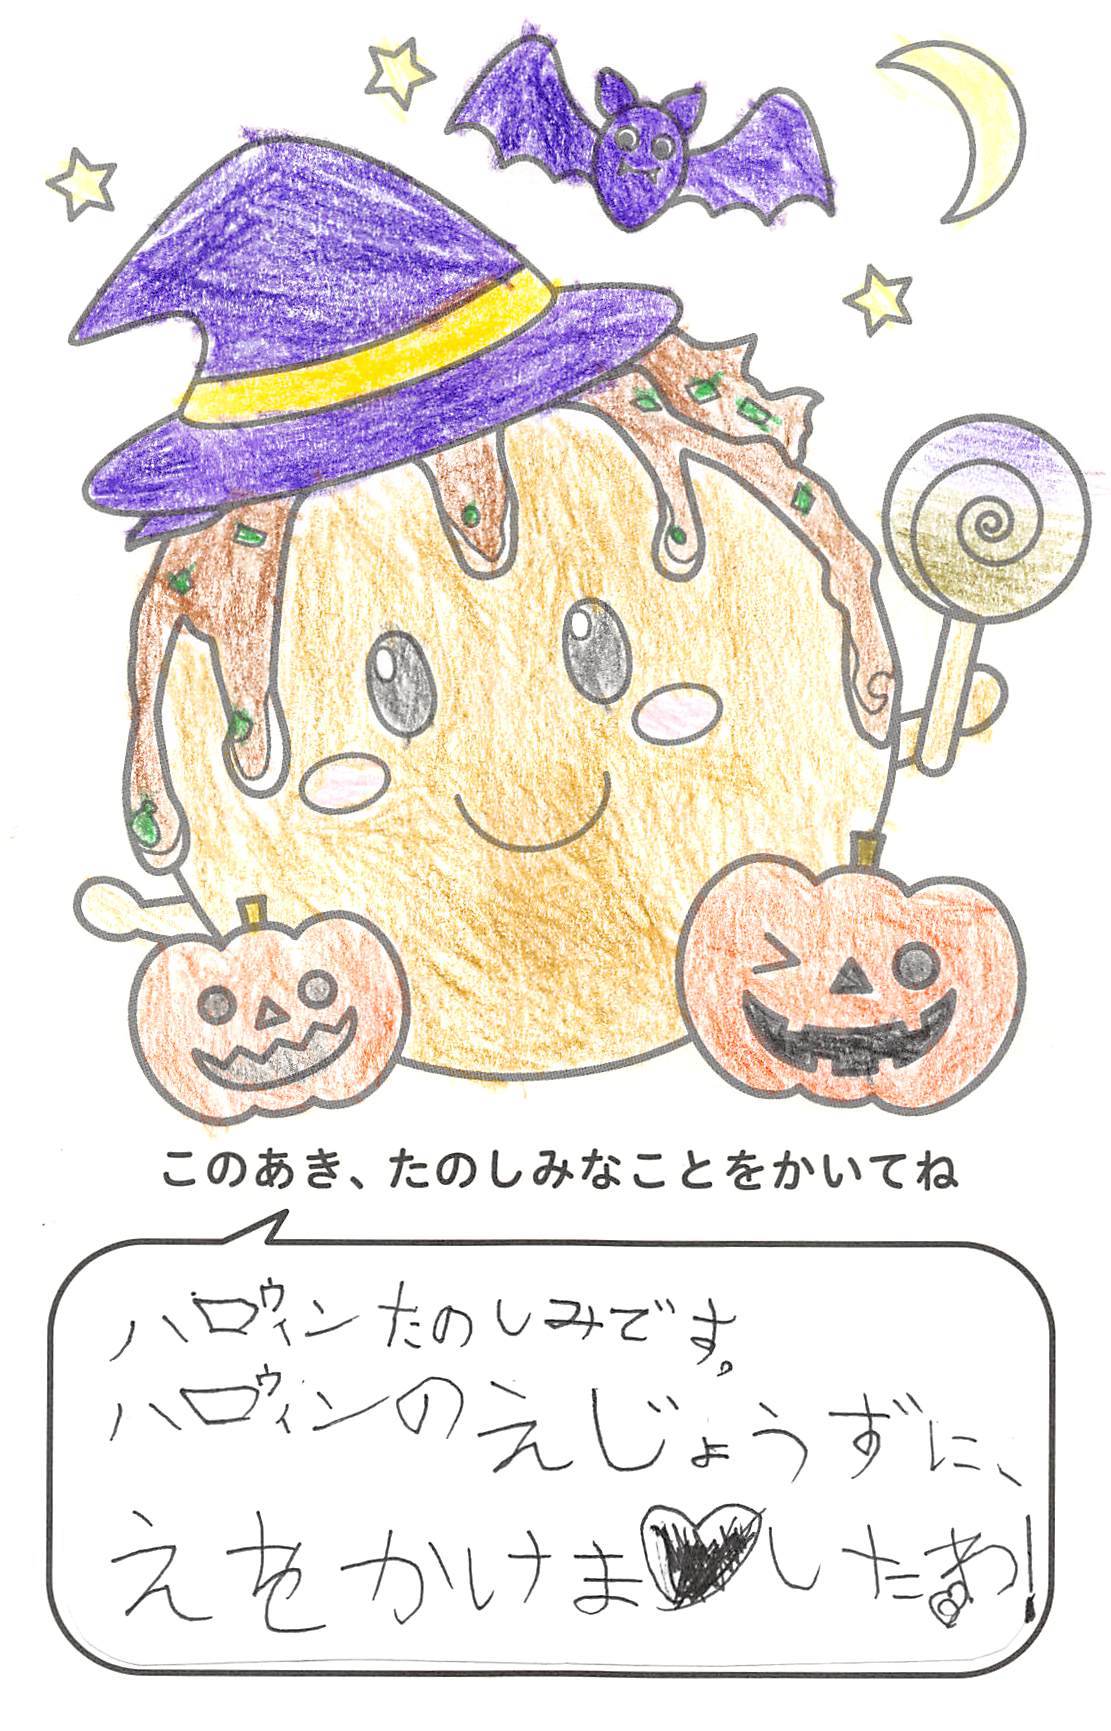 このあき、たのしみなことをかいてね
ハロウィンたのしみです。
ハロウィンのえじょうずに、
えをかけま♥したわ!